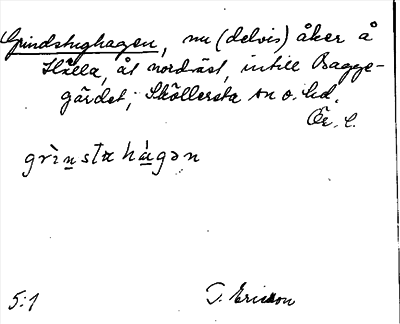 Grindstughagen, nu (delvis) åker å
Hälla, åt nordväst, intill Bagge-
gärdet; Sköllersta sn o. hd.
Ör. l.
grìnsta hàgən
5:1 T. Ericson